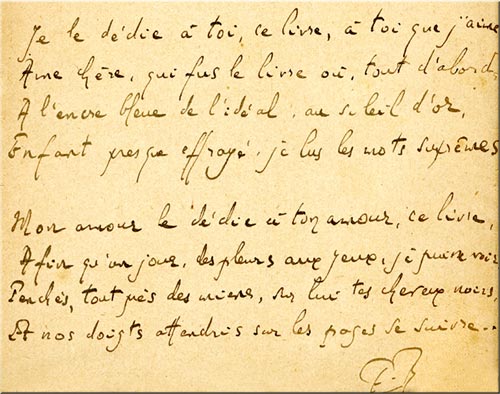 Je le dédie à toi, ce livre, à toi que j'aime
Ame chère, qui fus le livre où, tout d'abord
A l'encre bleue de l'idéal, au soleil d'or,
Enfant presque effrayé, je lus les mots suprêmes
Mon amour le dédie à ton amour, ce livre,
Afin qu'un jour, des pleurs aux yeux, je puisse voir
Penchés, tout près des miens, sur lui tes cheveux noirs
Et nos doigts attendris sur les pages se suivre...